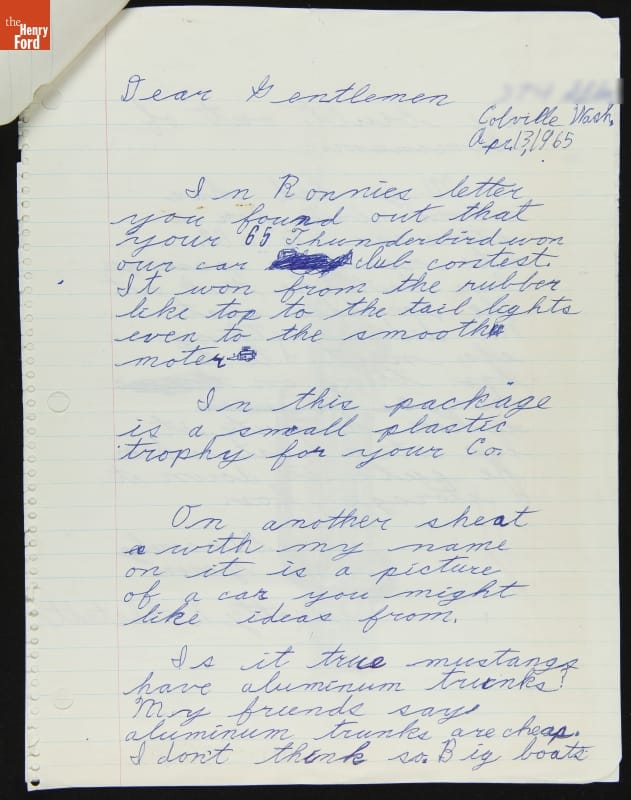 the
Henry
Ford
Dear Gentlemen
Colville Wash.
Apr.13,1965
In Ronnies letter
you found out that
your 65 Thunderbird won
our car club contest.
It won from the rubber
like top to the tail lights
even to the smooth
moter
In this package
is a small plastic
trophy for your Co.
On another sheat
with my name
on it is a picture
of a car you might
like ideas from.
Is it true mustangs
have aluminum trunks?
My friends say
aluminum trunks are cheap.
I don't think so. Big boats